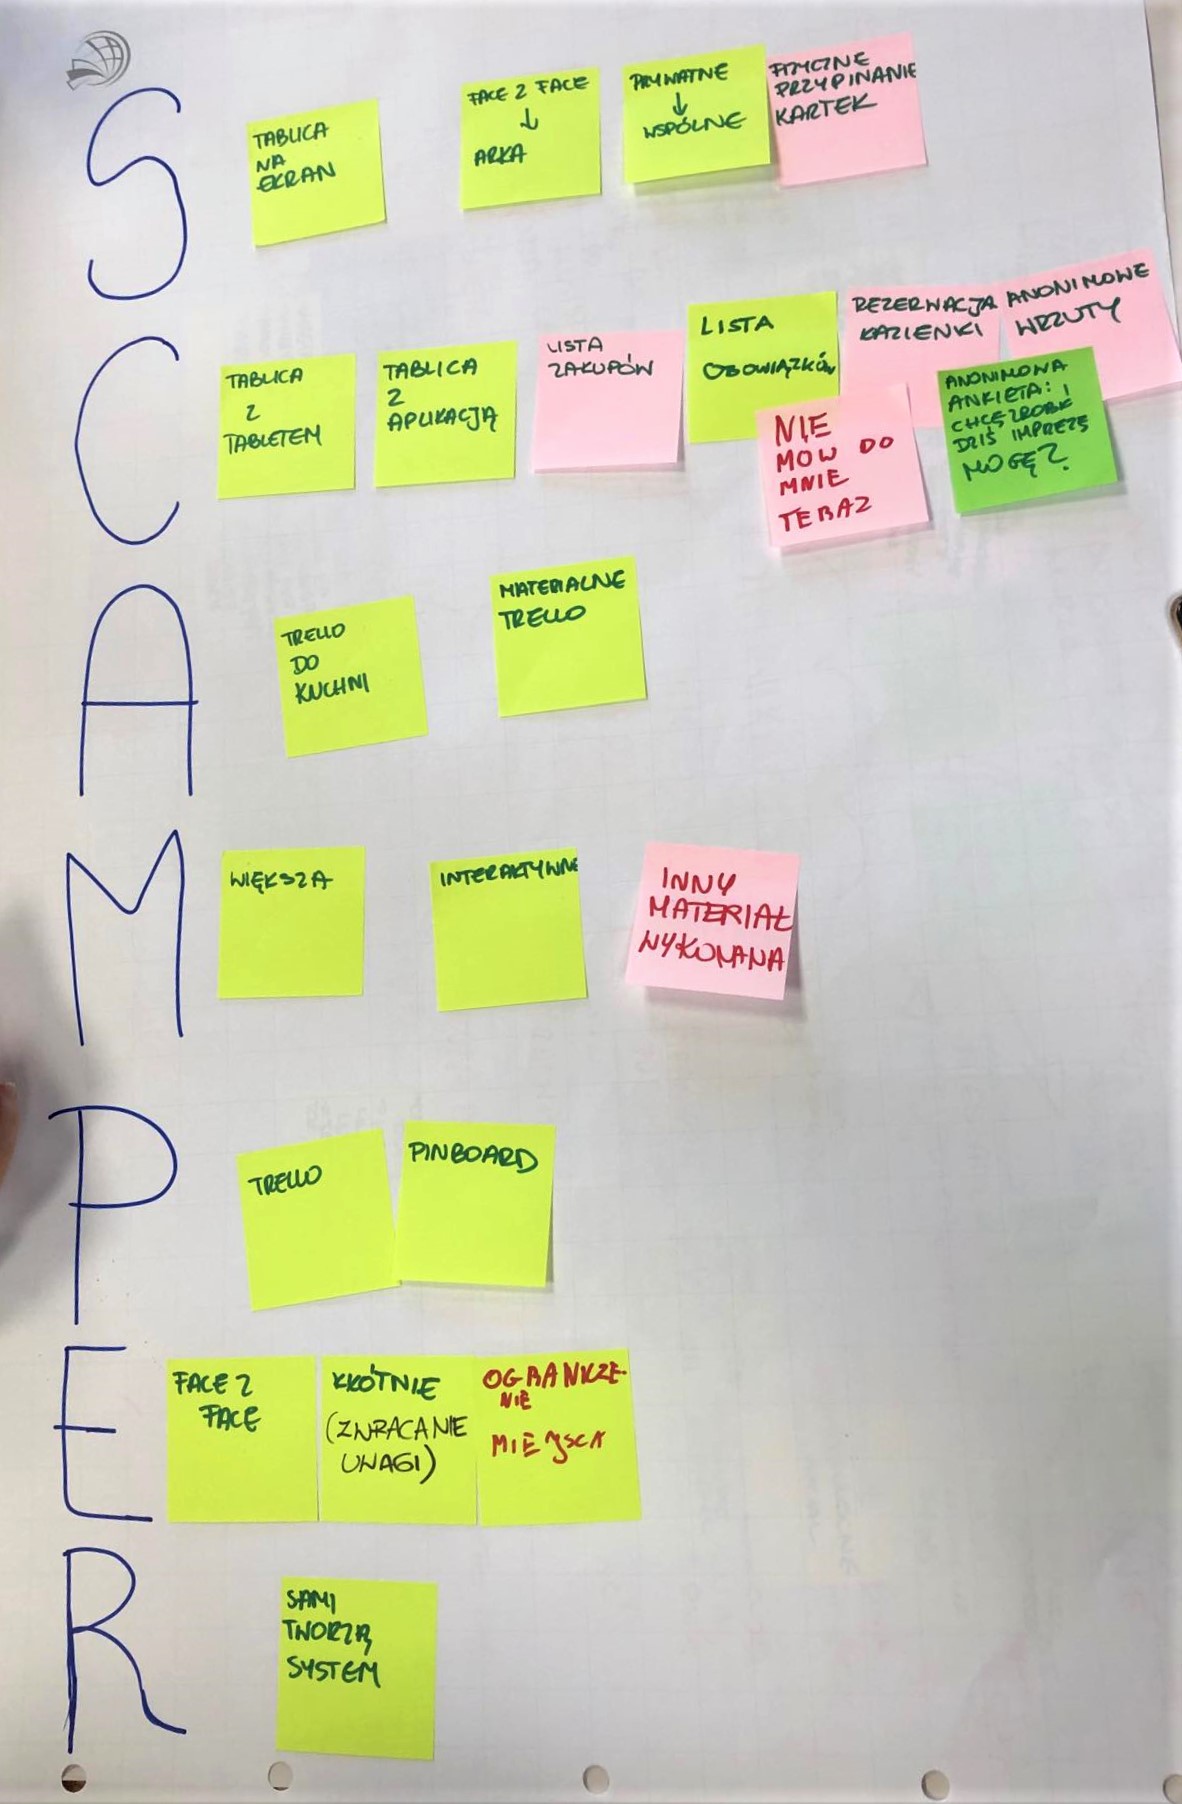 S
TABLICA
NA
EKRAN
FACE 2 FACE
↓
ARKA
PRYWATNE
↓
WSPÓLNE
FIZYCZNE
PRZYPINANIE
KARTEK
C
TABLICA
Z
TABLETEM
TABLICA
Z
APLIKACJĄ
LISTA
ZAKUPÓW
LISTA
OBOWIĄZKÓW
REZERWACJA
ŁAZIENKI
ANONIMOWE
WRZUTY
NIE
MOW DO
MNIE
TERAZ
ANONIMOWA
ANKIETA: I
CHCĘ ZROBIĆ
DZIŚ IMPREZĘ
MOGĘ?
A
TRELLO
DO
KUCHNI
MATERIALNE
TRELLO
M
WIĘKSZA
INTERAKTYWNE
INNY
MATERIAŁ
WYKONANA
P
TRELLO
PINBOARD
E
FACE 2
FACE
KŁÓTNIE
(ZWRACANIE
UWAGI)
OGRANICZE-
NIE
MIEJSCA
R
SAMI
TWORZĄ
SYSTEM